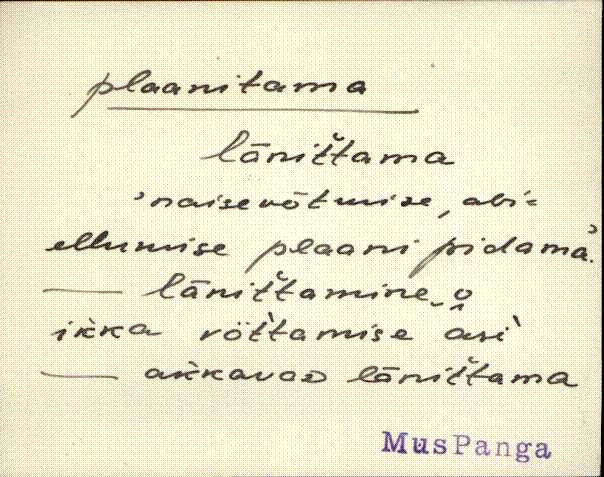 plaanitama
lāniťtama
'naisevōtmise, abi=
ellumise plaani pidama'.
— lāniťtamine‿o̭
ik̀ka vöt̀tamise āsi`
— akkavaᴅ lāniťtama
MusPanga